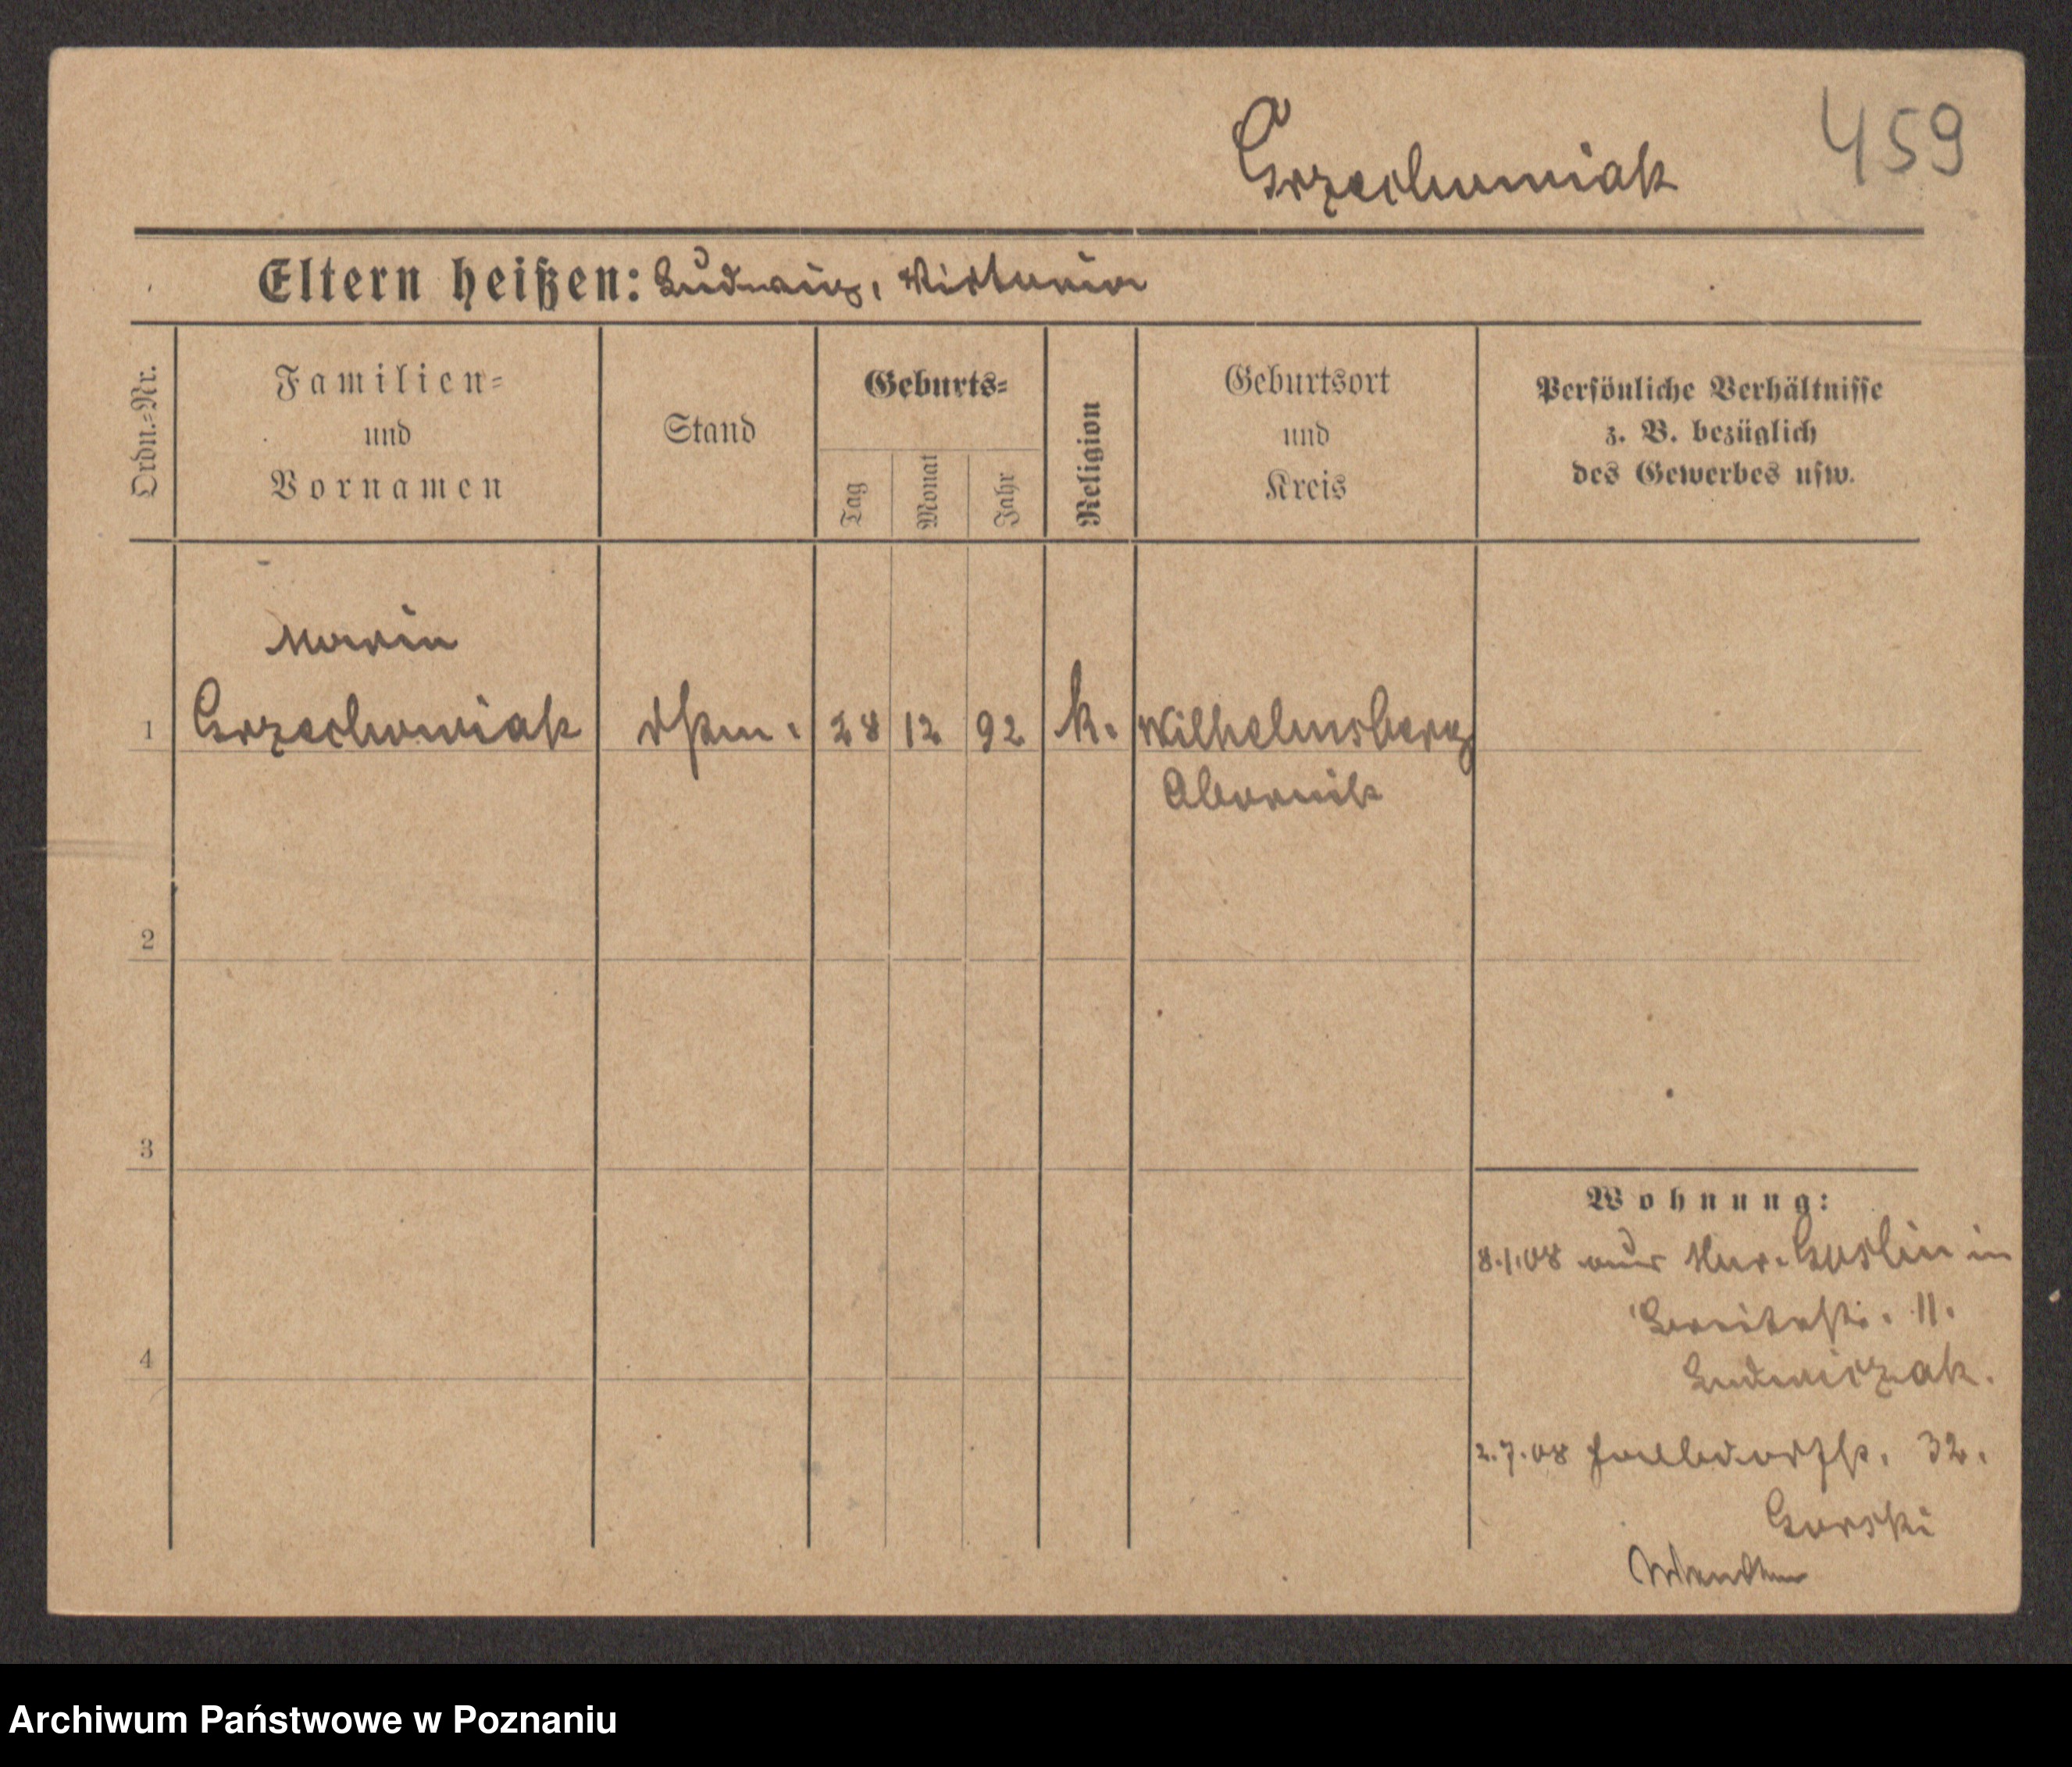 Grzechowiak 459
Eltern heißen: Ludwig, Victoria
Ordn.=Nr.
Familien=
und
Vornamen
Stand
Geburts=
Tag
Monat
Jahr
Religion
Geburtsort
und
Kreis
Persönliche Verhältnisse
z. B. bezüglich
des Gewerbes usw.
Maria
1 Grzechowiak 28 12 92 k. Wilhelmsberg
Obornik
2
3
4
Wohnung:
8.1.08 aus Mur. Goslin in
Breitestr. 11.
Ludwiczak.
2.7.08 32.
Gorski
Archiwum Państwowe w Poznaniu